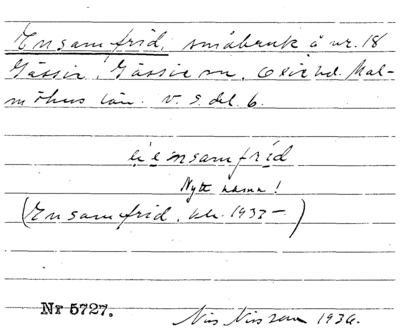 Ensamfrid, småbruk å nr. 18
Gässie, Gässie sn, Oxie hd. Mal-
möhus län. v. S. del. 6.
ensamfrid
Nytt namn!
(Ensamfrid, 1932-)
Nr 5727.
Nils Nilsson 1936.